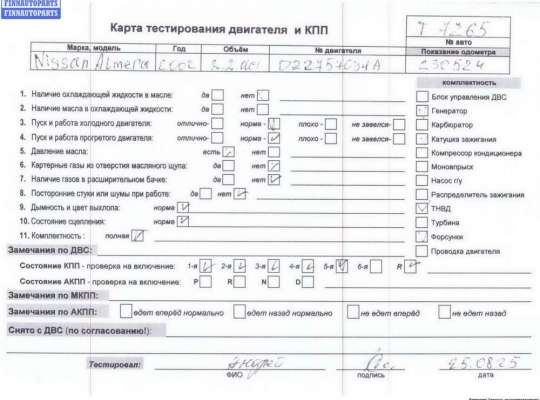 FINNAUTOPARTS
FINNAUTOPARTS
Карта тестирования двигателя и КПП
T 7265
№ авто
Марка, модель Год Объём № двигателя Показание одометра
Nissan Almera 2002 2.2 dci 230524
комплектность
1. Наличие охлаждающей жидкости в масле: да нет
Блок управления ДВС
2. Наличие масла в охлаждающей жидкости: да нет
Генератор
3. Пуск и работа холодного двигателя: отлично- норма - плохо - не завелся-
Карбюратор
4. Пуск и работа прогретого двигателя: отлично- норма - плохо - не завелся-
Катушка зажигания
5. Давление масла: есть нет
Компрессор кондиционера
6. Картерные газы из отверстия масляного щупа: да нет
Моновпрыск
7. Наличие газов в расширительном бачке: да нет
Насос г/у
8. Посторонние стуки или шумы при работе: да нет
Распределитель зажигания
9. Дымность и цвет выхлопа: норма
ТНВД
10. Состояние сцепления: норма
Турбина
11. Комплектность : полная
Форсунки
Замечания по ДВС:
Проводка двигателя
Состояние КПП - проверка на включение: 1-я 2-я 3-я 4-я 5-я 6-я R
Состояние АКПП - проверка на включение: P R N D
Замечания по МКПП:
Замечания по АКПП: едет вперёд нормально едет назад нормально не едет вперёд не едет назад
Снято с ДВС (по согласованию!):
Тестировал: Андрей 25.08.25
ФИО подпись дата